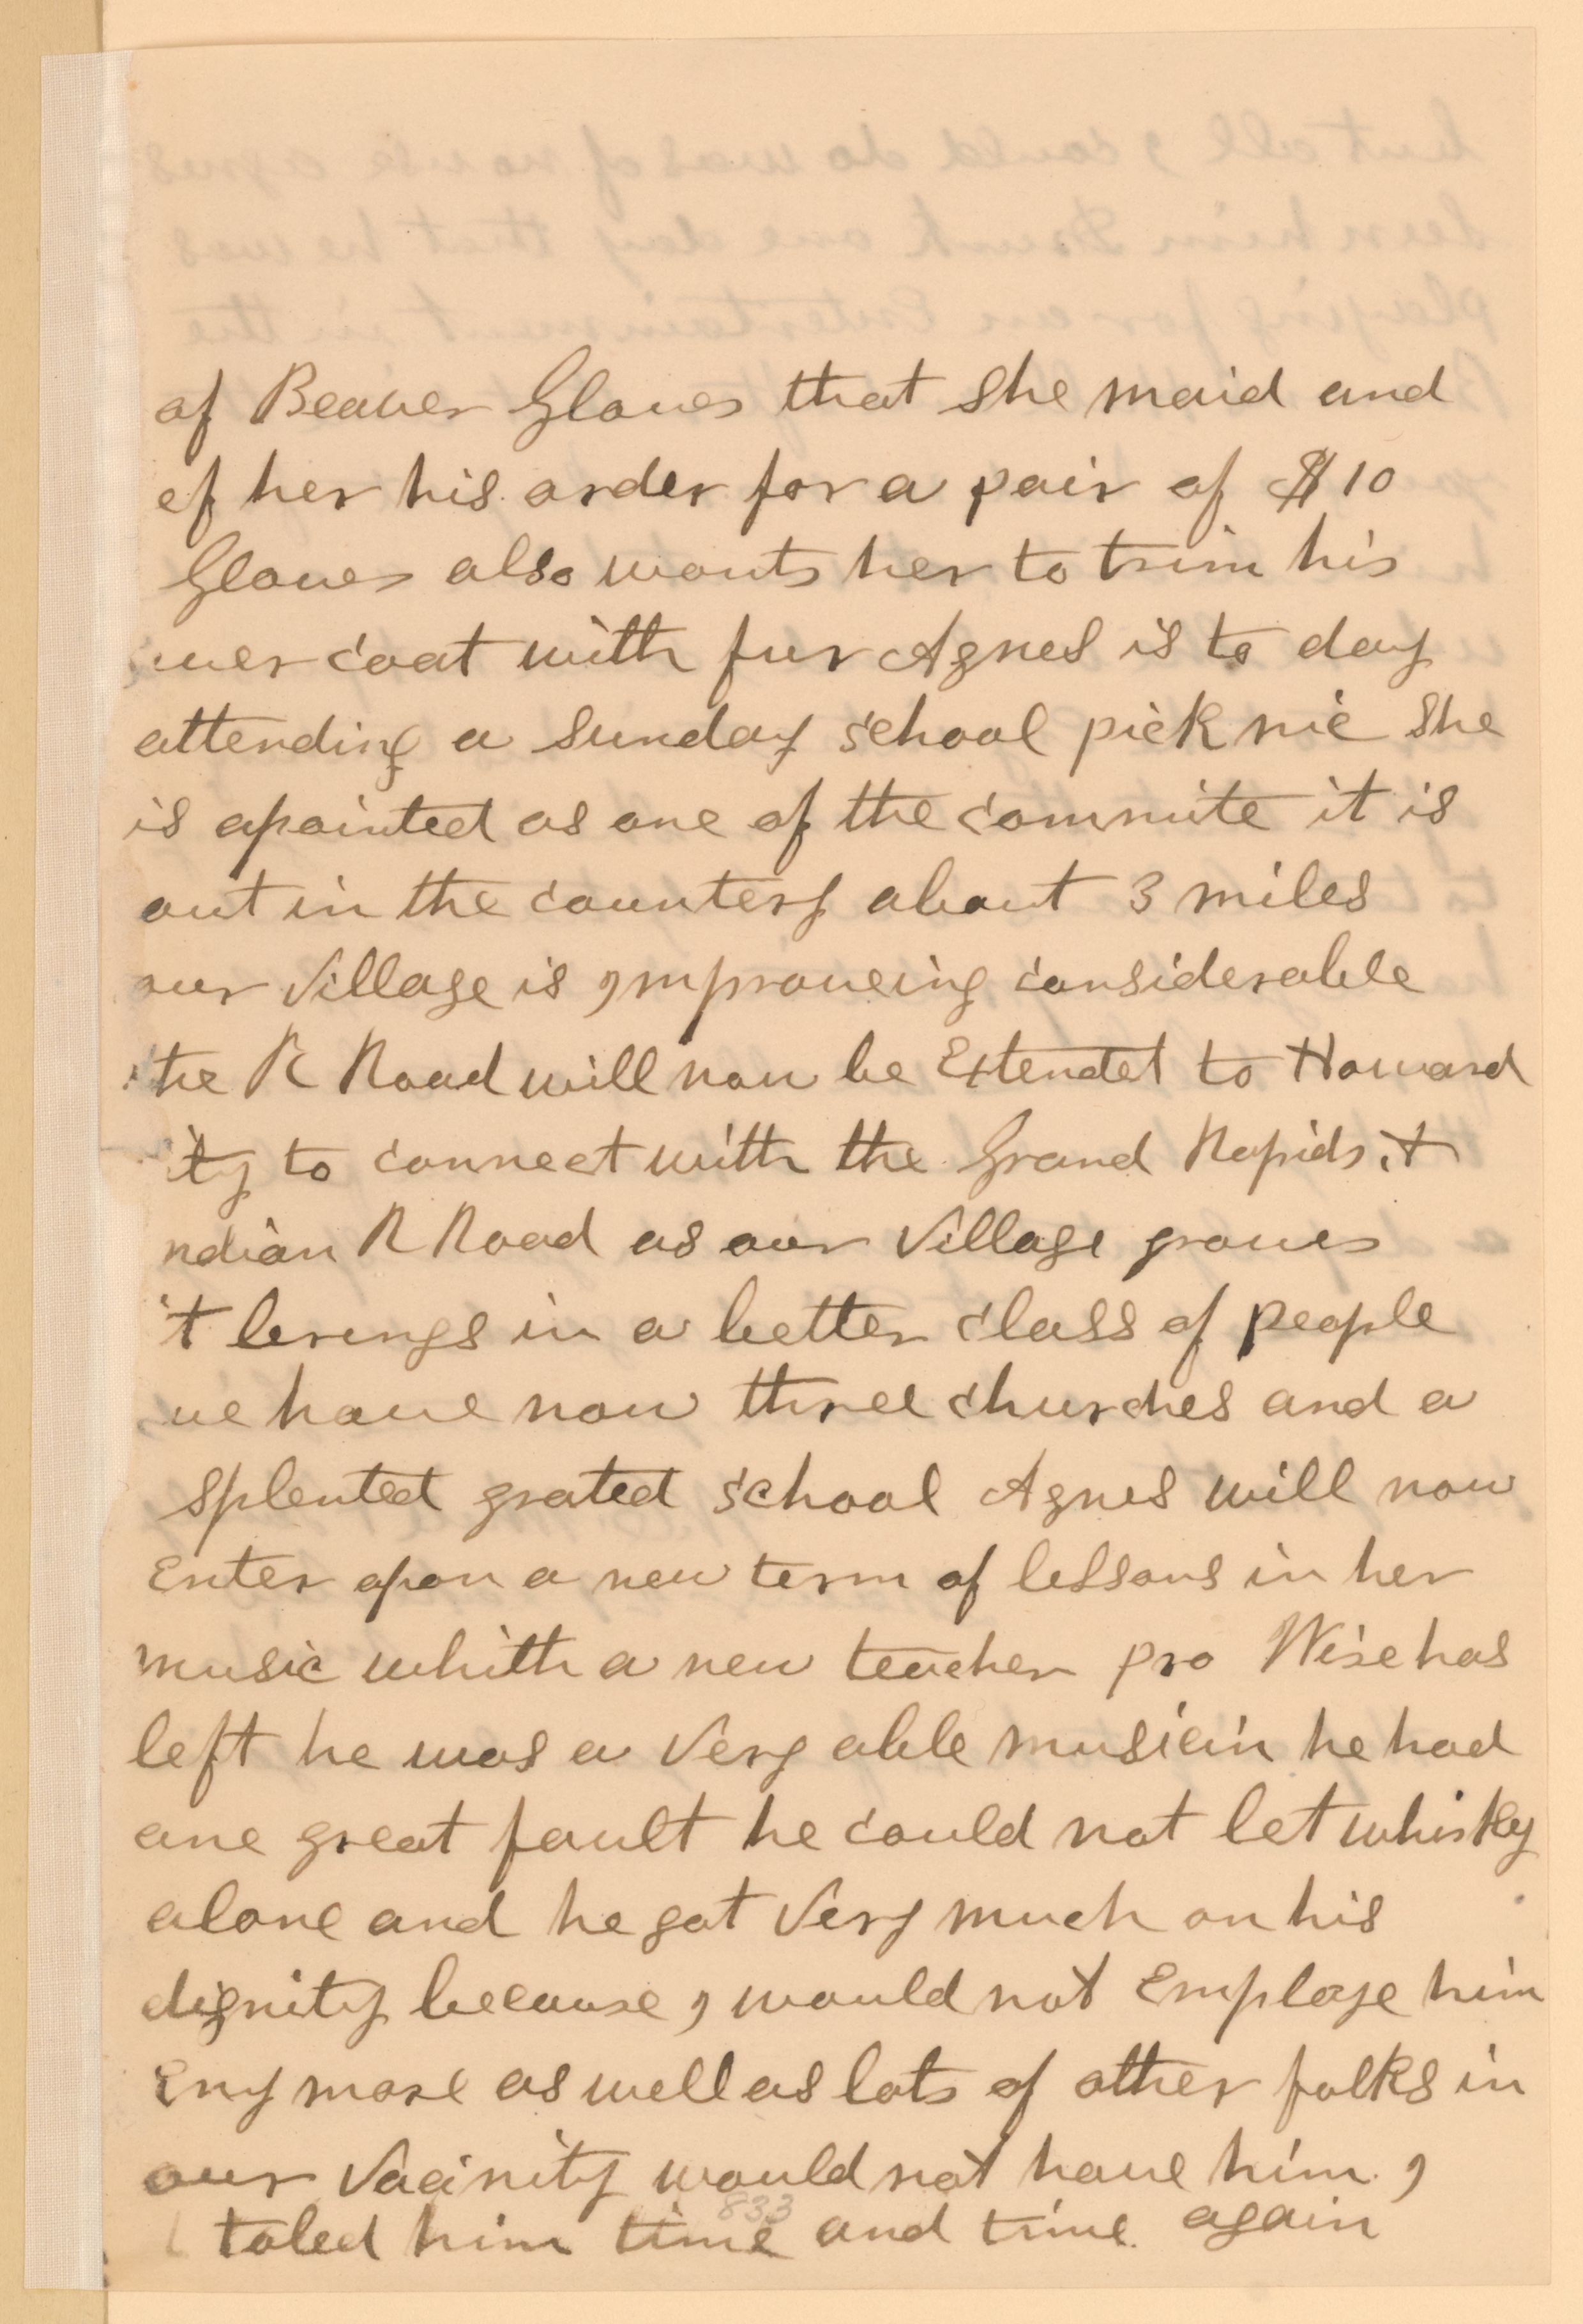 of Beaver Gloves that she maid and
ef her his order for a pair of $10
Gloves also wonts her to trim his
over coat with fur Agnes is to day
attending a Sunday school pick nic she
is apointed as one of the commite it is
out in the countery about 3 miles
our Village is Improveing considerable
the R Road will now be Extendet to Howard
ity to connect with the Grand Rapids &
ndian R Road as our Village grows
it brings in a better class of people
we have now three churches and a
splented grated school Agnes will now
Enter apon a new term of lessons in her
music whith a new teacher pro Wise has
left he was a Very able musicin he had
one great fault he could not let whisky
alone and he got Very much on his
dignity because I would not Employe him
Eny more as well as lots of other folks in
our Vacinity would not have him. I
toled him time and time again
833